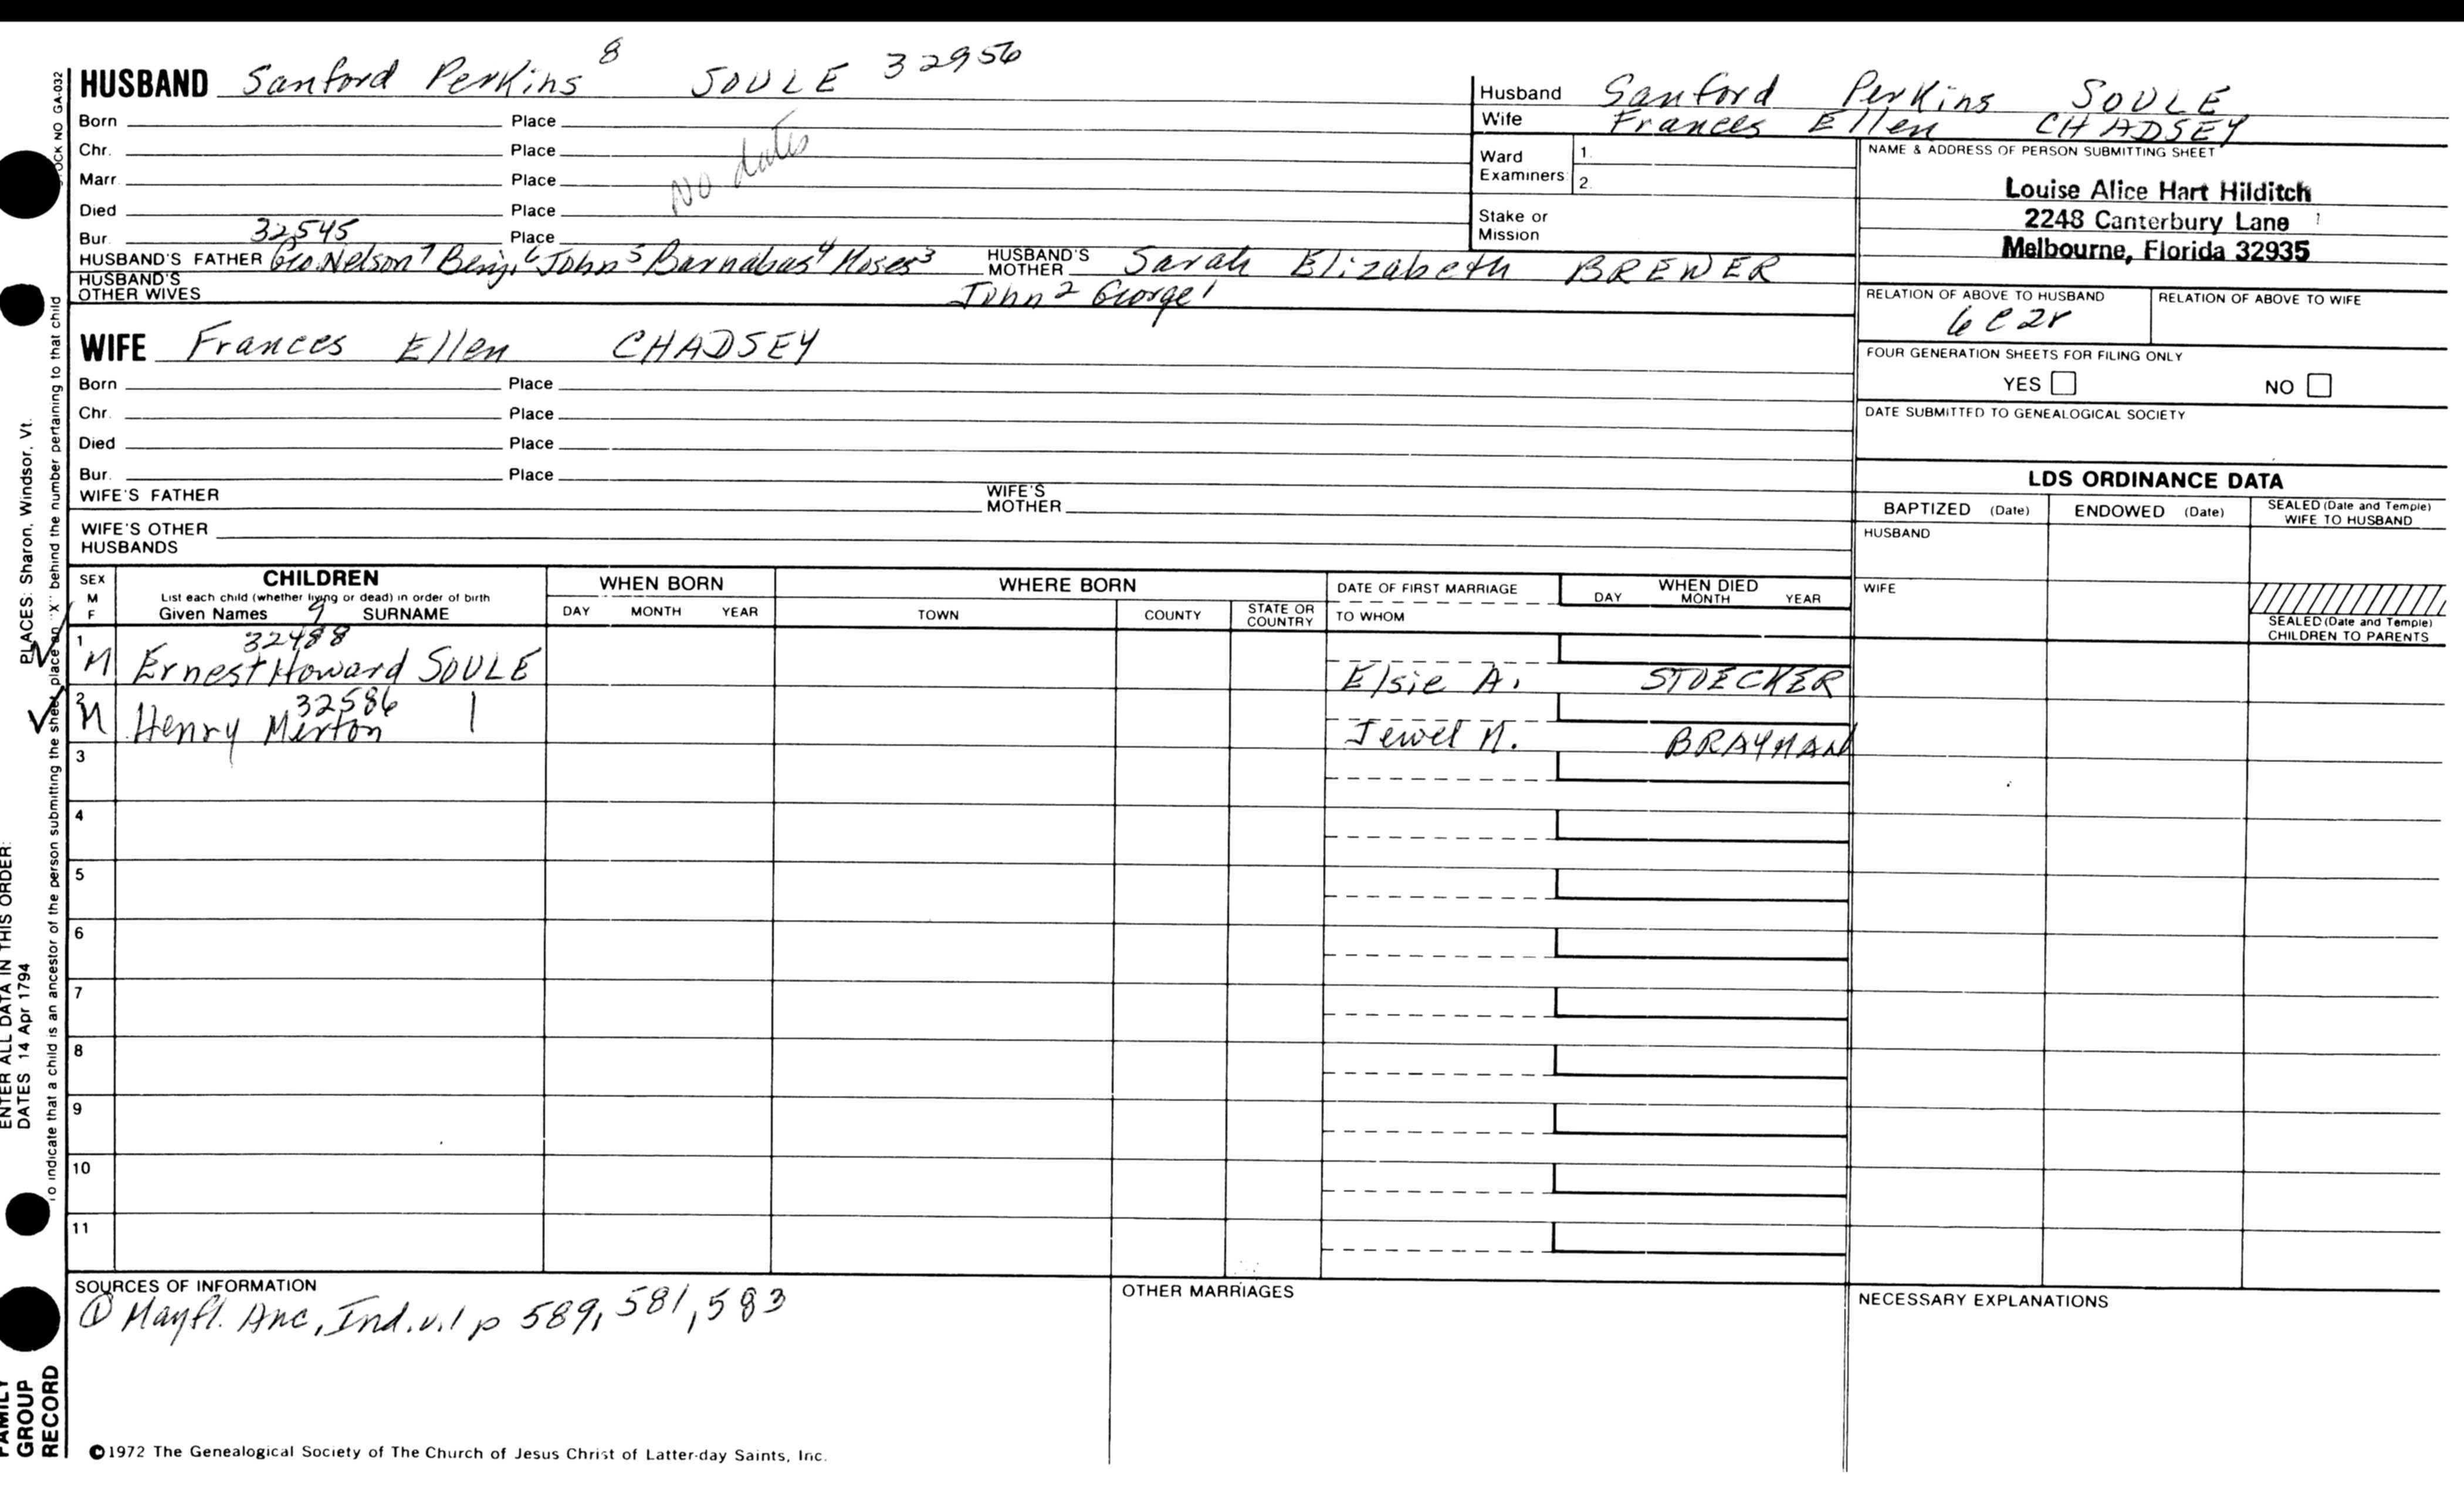 HUSBAND Sanford Perkins 8 SOULE 32956
Born Place
Chr. Place
Marr. Place
Died Place
No dates
32545
Bur. Place
HUSBAND'S FATHER Geo. Nelson 7 Benj. 6 John 5 Barnabas 4 Moses 3 HUSBAND'S MOTHER Sarah Elizabeth BREWER
HUSBAND'S OTHER WIVES John 2 George 1
WIFE Frances Ellen CHADSEY
Born Place
Chr. Place
Died Place
Bur. Place
WIFE'S FATHER WIFE'S MOTHER
WIFE'S OTHER HUSBANDS
Husband Sanford Perkins SOULE
Wife Frances Ellen CHADSEY
Ward Examiners 1. 2.
Stake or Mission
NAME & ADDRESS OF PERSON SUBMITTING SHEET
Louise Alice Hart Hilditch
2248 Canterbury Lane
Melbourne, Florida 32935
RELATION OF ABOVE TO HUSBAND RELATION OF ABOVE TO WIFE
6C2r
FOUR GENERATION SHEETS FOR FILING ONLY
YES NO
DATE SUBMITTED TO GENEALOGICAL SOCIETY
LDS ORDINANCE DATA
BAPTIZED (Date) ENDOWED (Date) SEALED (Date and Temple) WIFE TO HUSBAND
HUSBAND
WIFE
SEALED (Date and Temple)
CHILDREN TO PARENTS
SEX M F
CHILDREN
List each child (whether living or dead) in order of birth
Given Names 9 SURNAME
WHEN BORN
DAY MONTH YEAR
WHERE BORN
TOWN COUNTY STATE OR COUNTRY
DATE OF FIRST MARRIAGE
TO WHOM
WHEN DIED
DAY MONTH YEAR
32488
1 M Ernest Howard SOULE Elsie A. STOECKER
32586
2 M Henry Merton Jewel M. BRAYMAN
3
4
5
6
7
8
9
10
11
SOURCES OF INFORMATION
① Mayfl. Anc, Ind. v.1 p 589, 581, 583
OTHER MARRIAGES
NECESSARY EXPLANATIONS
©1972 The Genealogical Society of The Church of Jesus Christ of Latter-day Saints, Inc.
STOCK NO GA-032
To indicate that a child is an ancestor of the person submitting the sheet, place an "X" behind the number pertaining to that child
PLACES: Sharon, Windsor, Vt.
ENTER ALL DATA IN THIS ORDER:
DATES 14 Apr 1794
FAMILY GROUP RECORD